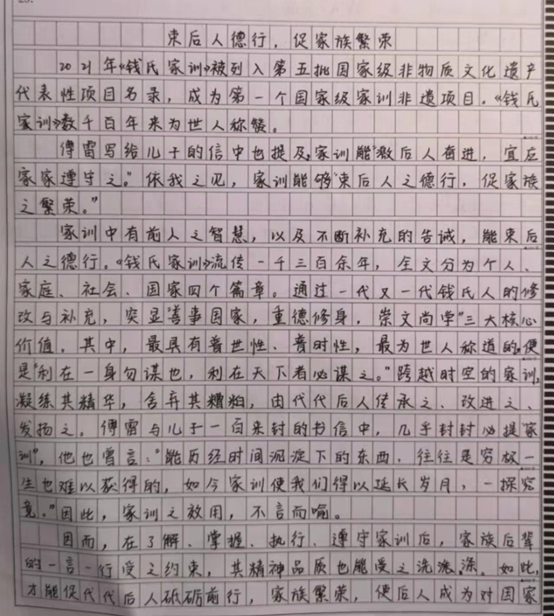 束后人德行，促家族繁荣
2021年《钱氏家训》被列入第五批国家级非物质文化遗产
代表性项目名录，成为第一个国家级家训非遗项目。《钱氏
家训》数千百年来为世人称赞。
傅雷写给儿子的信中也提及"家训能激后人奋进，宜应
家家遵守之。"依我之见，家训能够"束后人之德行，促家族
之繁荣。"
家训中有前人之智慧，以及不断补充的告诫，能束后
人之德行。《钱氏家训》流传一千三百余年，全文分为个人、
家庭、社会、国家四个篇章。通过一代又一代钱氏人的修
改与补充，突显"善事国家，重德修身，崇文尚学"三大核心
价值。其中，最具有普世性、普时性，最为世人称道的，便
是"利在一身勿谋也，利在天下者必谋之。"跨越时空的家训，
凝练其精华，舍弃其糟粕，由代代后人传承之、改进之、
发扬之。傅雷与儿子一百来封的书信中，几乎封封必提"家
训"，他也曾言："能历经时间沉淀下的东西，往往是穷极一
生也难以获得的，如今家训使我们得以延长岁月，一探究
竟。"因此，家训之效用，不言而喻。
因而，在了解、掌握、执行、遵守家训后，家族后辈
的一言一行受之约束，其精神品质也能受之洗涤。如此，
才能促代代后人砥砺前行，家族繁荣，使后人成为对国家